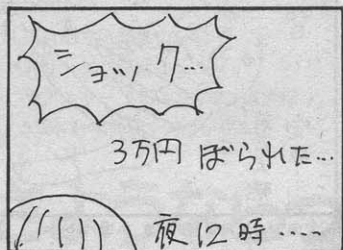 ショック…
3万円 ぼられた…
夜12時‥‥